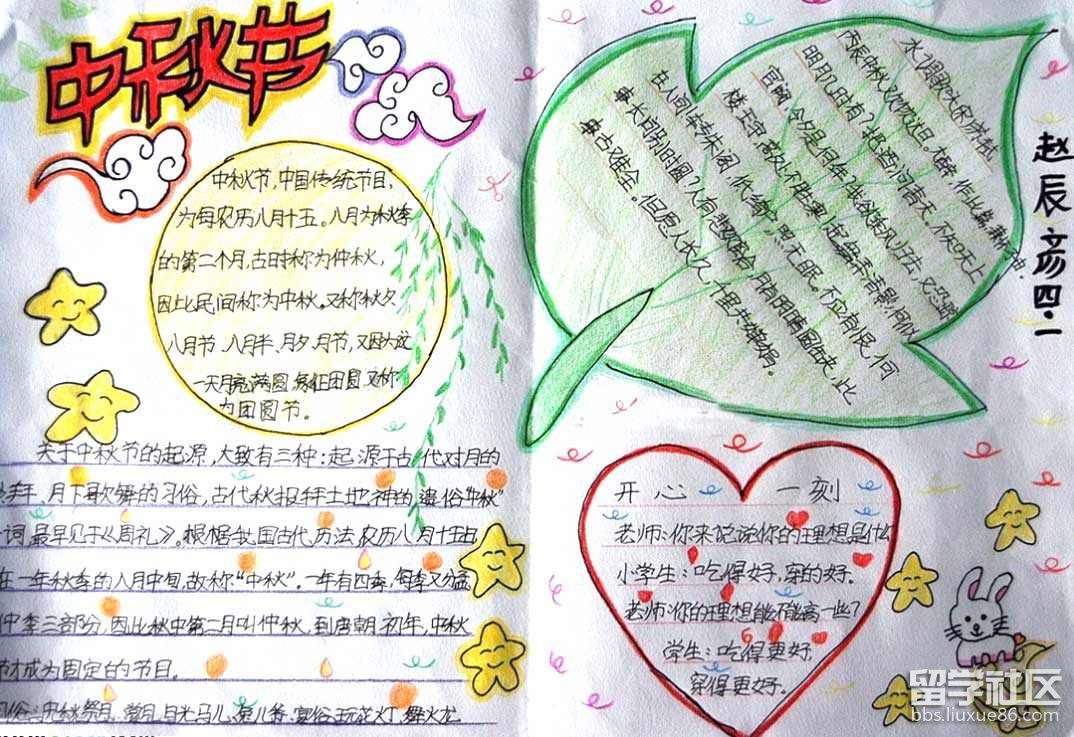 中秋节
中秋节，中国传统节目，
为每农历八月十五。八月为秋季
的第二个月，古时称为仲秋，
因比民间称为中秋。又称秋夕
八月节、八月半、月夕、月节，又因
一天月亮满圆，象征团圆，又称
为团圆节。
关于中秋节的起源，大致有三种：起源于古代对月的
月下歌舞的习俗，古代秋报拜土地神的遗俗“中秋”
一词，最早见于《周礼》。根据我国古代历法，农历八月十五
在一年秋季的八月中旬，故称“中秋”。一年有四季，每季又分孟
仲季三部分，因比秋中第二月叫仲秋，到唐朝初年，中秋
节才成为固定的节目。
习俗：中秋祭月、赏月、月光马儿、兔儿爷、宴俗、玩花灯、舞火龙
水调歌头 宋 苏轼
丙辰中秋，欢饮达旦。大醉，作此篇，兼怀
明月几时有？把酒问青天，不知天上
宫阙，今夕是何年？我欲乘风归去，又恐琼
楼玉宇，高处不胜寒，起舞弄清影，何似
在人间！转朱阁，低绮户，照无眠。不应有恨，何
事长向别时圆？人有悲欢离合，月有阴晴圆缺，此
事古难全。但愿人长久，千里共婵娟。
赵辰彦 四·一
开心一刻
老师：你来说说你的理想是什么
小学生：吃得好，穿的好。
老师：你的理想能不能高一些？
学生：吃得更好，
穿得更好。
留学社区
bbs.liuxue86.com